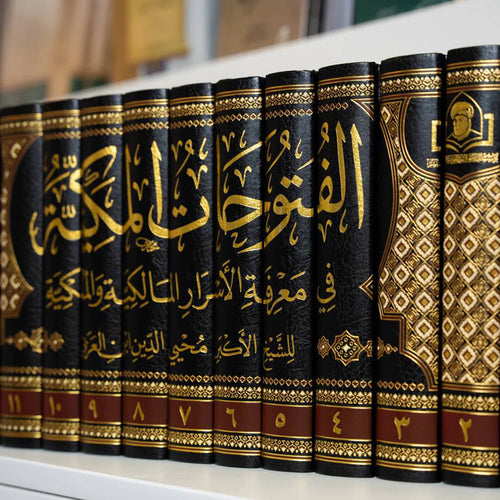 الفُتُوحَاتُ المَكِّيَّة
في مَعْرِفَةِ الأَسْرَارِ المَالِكِيَّةِ وَالمَلَكِيَّة
للشَّيْخِ الأَكْبَرِ مُحْيِي الدِّين بْن العَرَبي
١١ ١٠ ٩ ٨ ٧ ٦ ٥ ٤ ٣ ٢